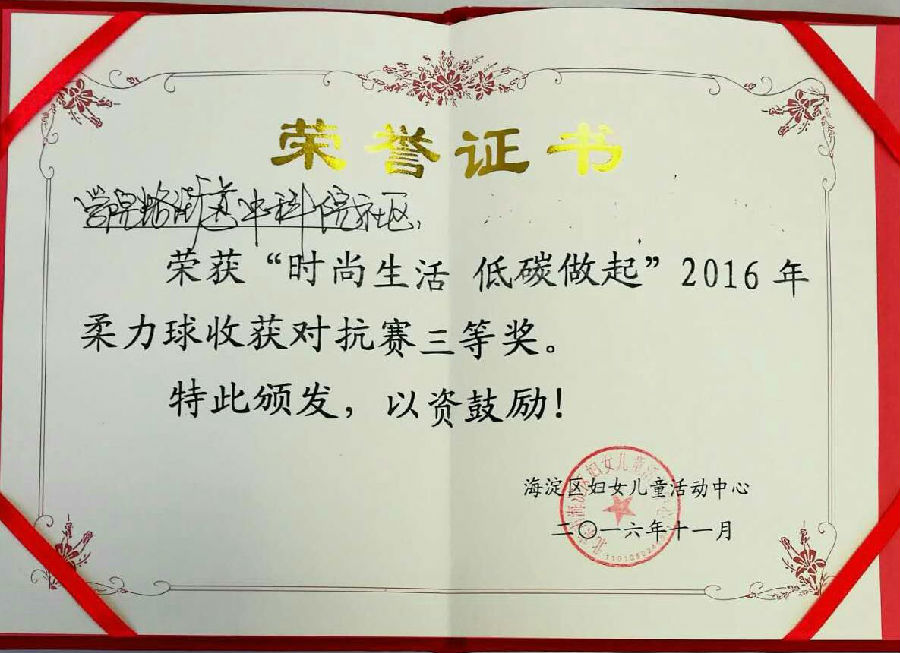 荣誉证书
学院路街道中科院社区:
荣获“时尚生活 低碳做起”2016年
柔力球收获对抗赛三等奖。
特此颁发，以资鼓励！
海淀区妇女儿童活动中心
二〇一六年十一月